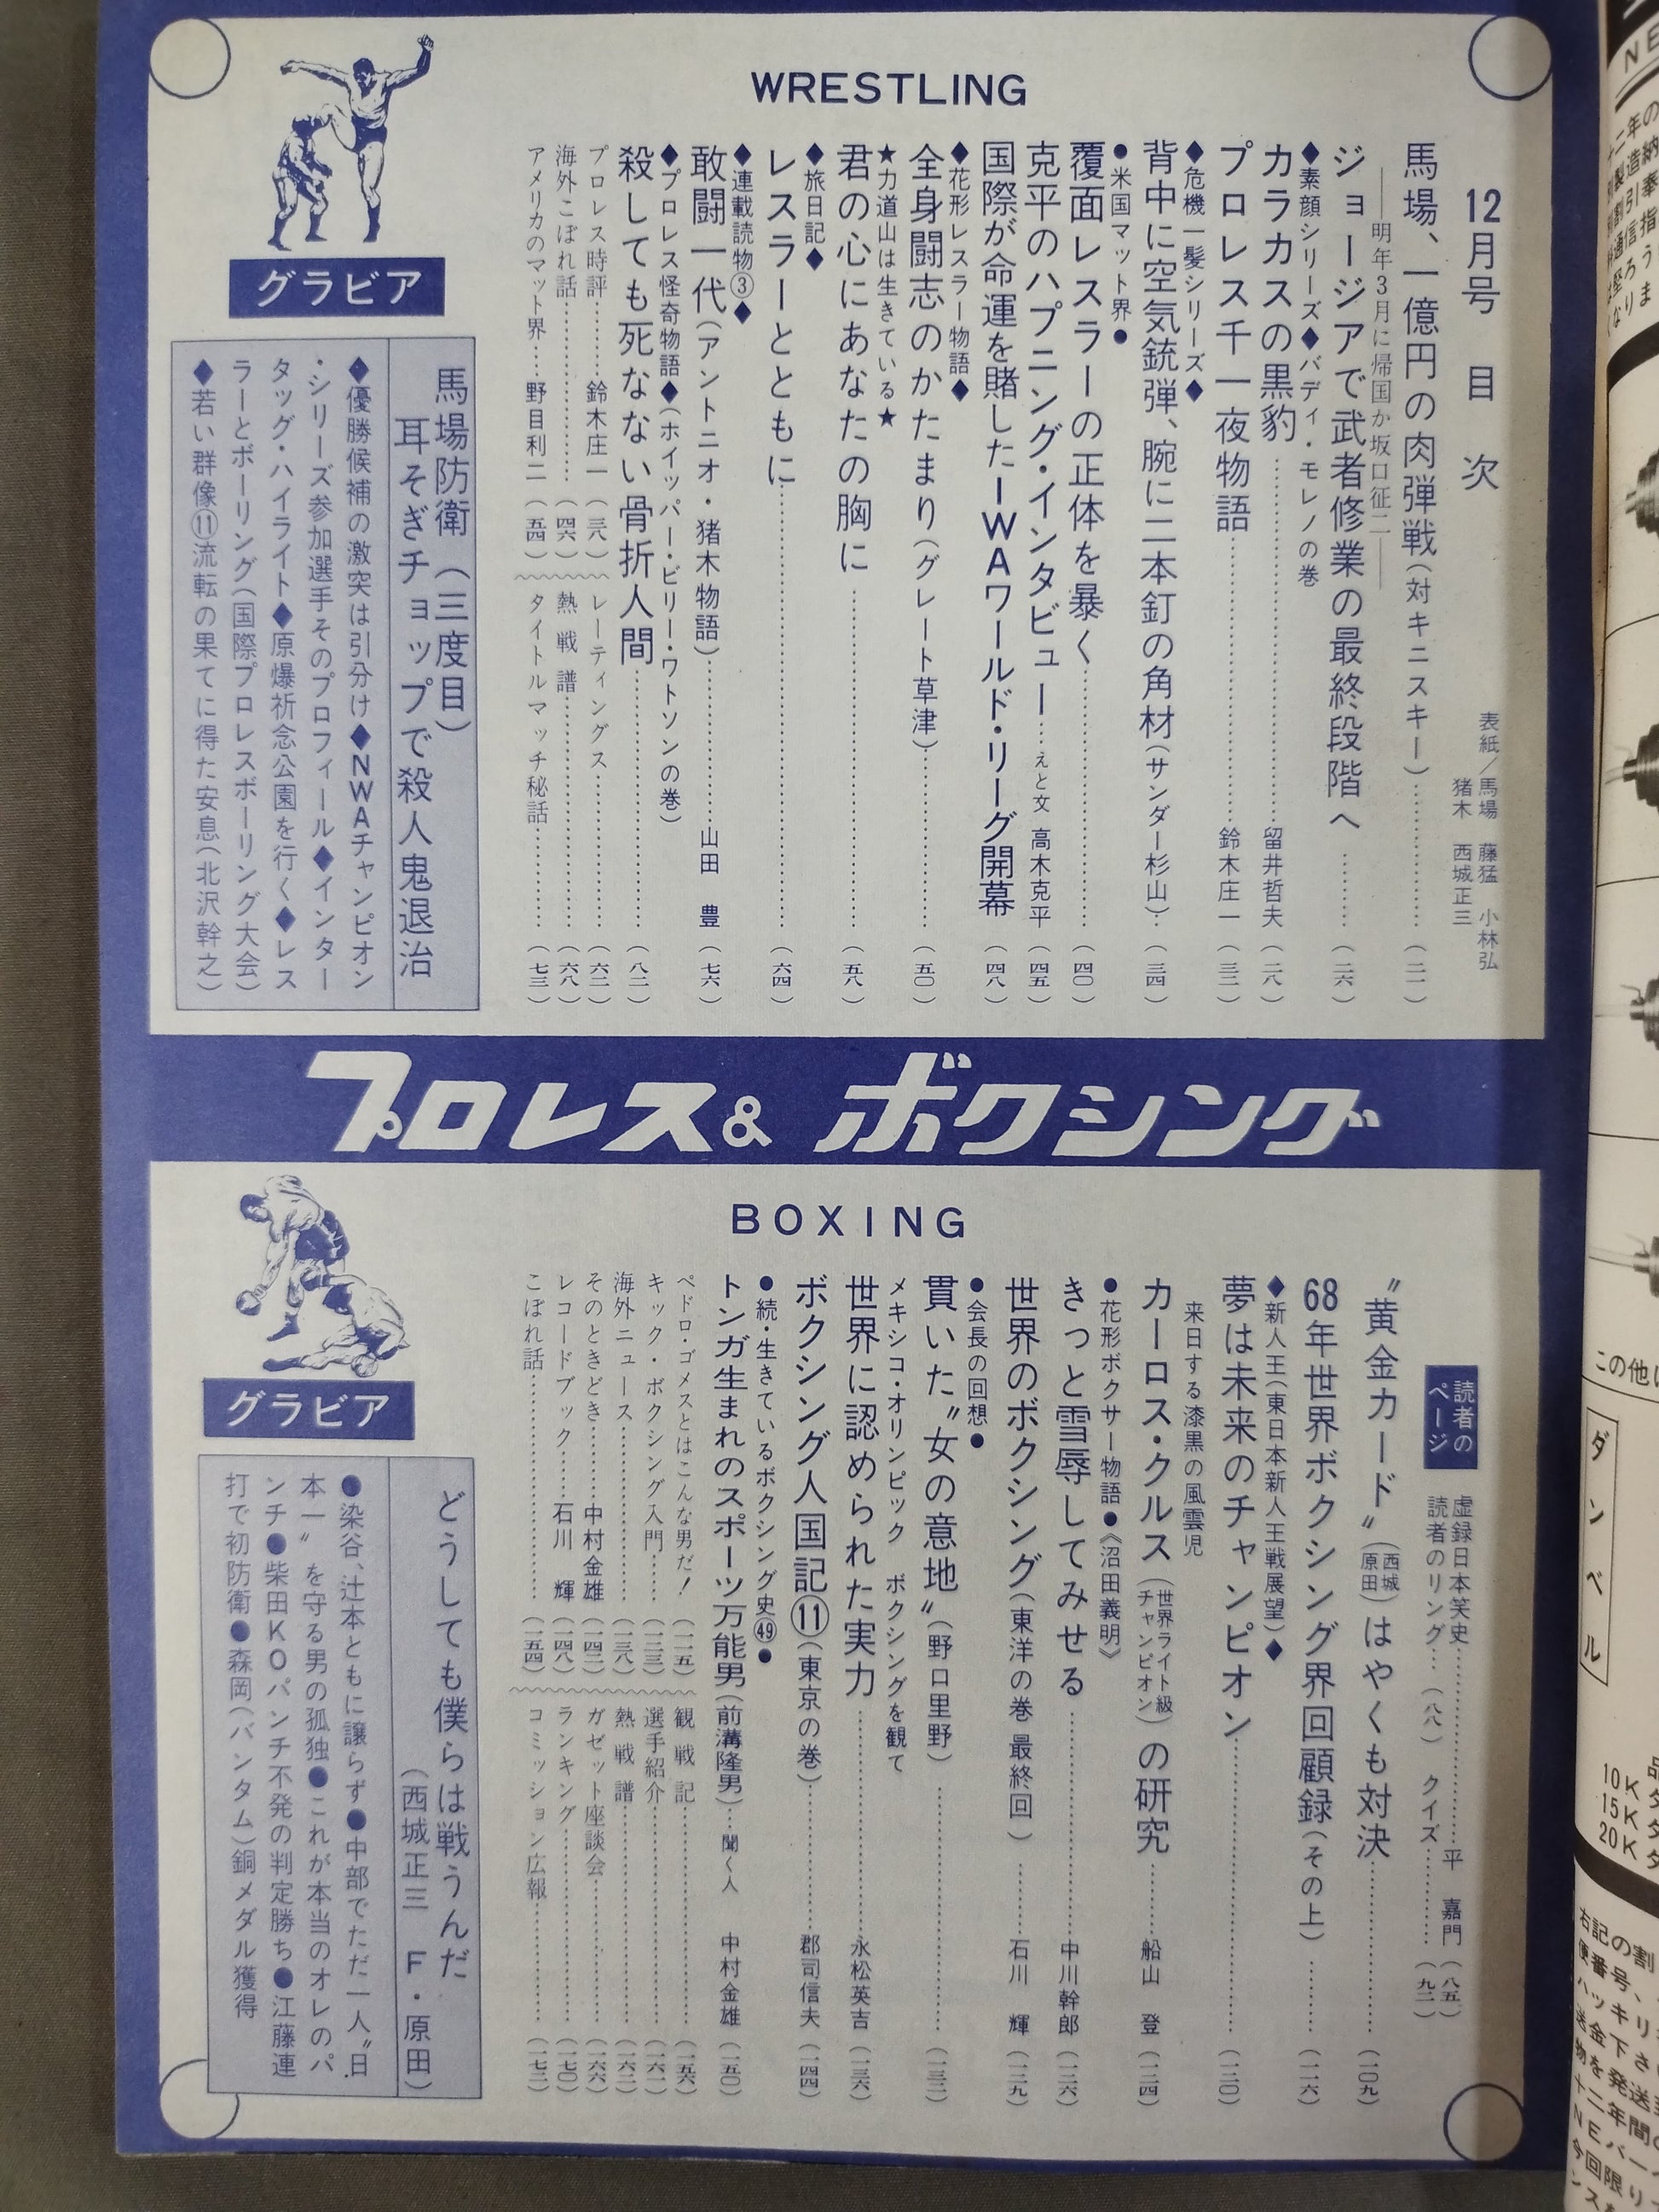 WRESTLING
12月号 目次
表紙／馬場 藤猛 小林弘
猪木 西城正三
馬場、一億円の肉弾戦（対キニスキー）……（二一）
――明年3月に帰国か坂口征二――
ジョージアで武者修業の最終段階へ……（二六）
◆素顔シリーズ◆バディ・モレノの巻
カラカスの黒豹……留井哲夫（二八）
プロレス千一夜物語……鈴木庄一（三二）
◆危機一髪シリーズ◆
背中に空気銃弾、腕に二本釘の角材（サンダー杉山）…（三四）
●米国マット界●
覆面レスラーの正体を暴く……（四〇）
克平のハプニング・インタビュー…えと文 高木克平（四五）
国際が命運を賭したIWAワールド・リーグ開幕（四八）
◆花形レスラー物語◆
全身闘志のかたまり（グレート草津）……（五〇）
★力道山は生きている★
君の心にあなたの胸に……（五八）
◆旅日記◆
レスラーとともに……（六四）
◆連載読物③◆
敢闘一代（アントニオ・猪木物語）……山田 豊（七六）
◆プロレス怪奇物語◆（ホイッパー・ビリー・ワトソンの巻）
殺しても死なない骨折人間……（八二）
プロレス時評……鈴木庄一（三八）
海外こぼれ話……（四六）
アメリカのマット界…野目利二（五四）
レーティングス……（六二）
熱戦譜……（六八）
タイトルマッチ秘話……（七三）
グラビア
馬場防衛（三度目）
耳そぎチョップで殺人鬼退治
◆優勝候補の激突は引分け◆NWAチャンピオン
・シリーズ参加選手そのプロフィール◆インター
タッグ・ハイライト◆原爆祈念公園を行く◆レス
ラーとボーリング（国際プロレスボーリング大会）
◆若い群像⑪流転の果てに得た安息（北沢幹之）
プロレス&ボクシング
BOXING
読者の
ページ
虚録日本笑史……平 嘉門（八五）
読者のリング…（八八） クイズ……（九二）
〝黄金カード〟（西城
原田）はやくも対決……（一〇九）
68年世界ボクシング界回顧録（その上）……（一一六）
◆新人王（東日本新人王戦展望）◆
夢は未来のチャンピオン……（一二〇）
来日する漆黒の風雲児
カーロス・クルス（世界ライト級
チャンピオン）の研究……船山 登（一二四）
●花形ボクサー物語●《沼田義明》
きっと雪辱してみせる……中川幹郎（一二六）
世界のボクシング（東洋の巻 最終回）……石川 輝（一二九）
●会長の回想●
貫いた〝女の意地〟（野口里野）……（一三二）
メキシコ・オリンピック ボクシングを観て
世界に認められた実力……永松英吉（一三六）
ボクシング人国記⑪（東京の巻）……郡司信夫（一四四）
●続・生きているボクシング史㊾●
トンガ生まれのスポーツ万能男（前溝隆男）…聞く人 中村金雄（一五〇）
ペドロ・ゴメスとはこんな男だ！（一一五）
キック・ボクシング入門……（一二三）
海外ニュース……（一三八）
そのときどき……中村金雄（一四二）
レコードブック……石川 輝（一四八）
こぼれ話……（一五四）
観戦記……（一五六）
選手紹介……（一六一）
熱戦譜……（一六二）
ガゼット座談会……（一六六）
ランキング……（一七〇）
コミッション広報……（一七二）
グラビア
どうしても僕らは戦うんだ
（西城正三 F・原田）
●染谷、辻本ともに譲らず●中部でただ一人〝日
本一〟を守る男の孤独●これが本当のオレのパ
ンチ●柴田KOパンチ不発の判定勝ち●江藤連
打で初防衛●森岡（バンタム）銅メダル獲得
この他に
ダンベル
10K
15K
20K
右記の割
便番号、
ハッキリ
送金下さ
物を発送
十二年間
NEバー
今回限り